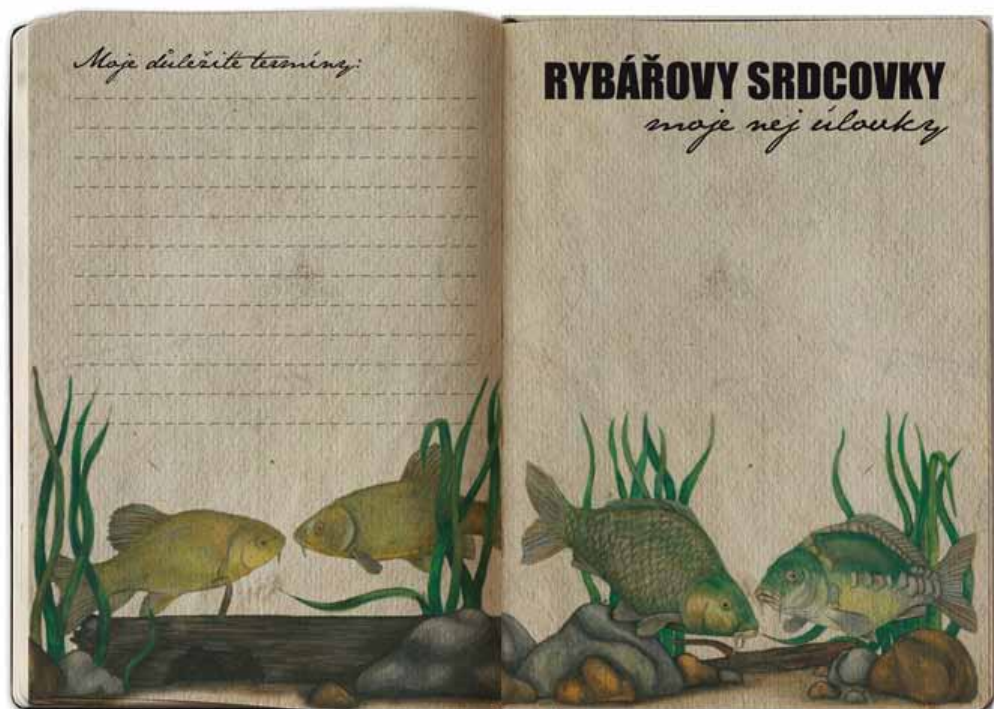 Moje důležité termíny:
RYBÁŘOVY SRDCOVKY
moje nej úlovky